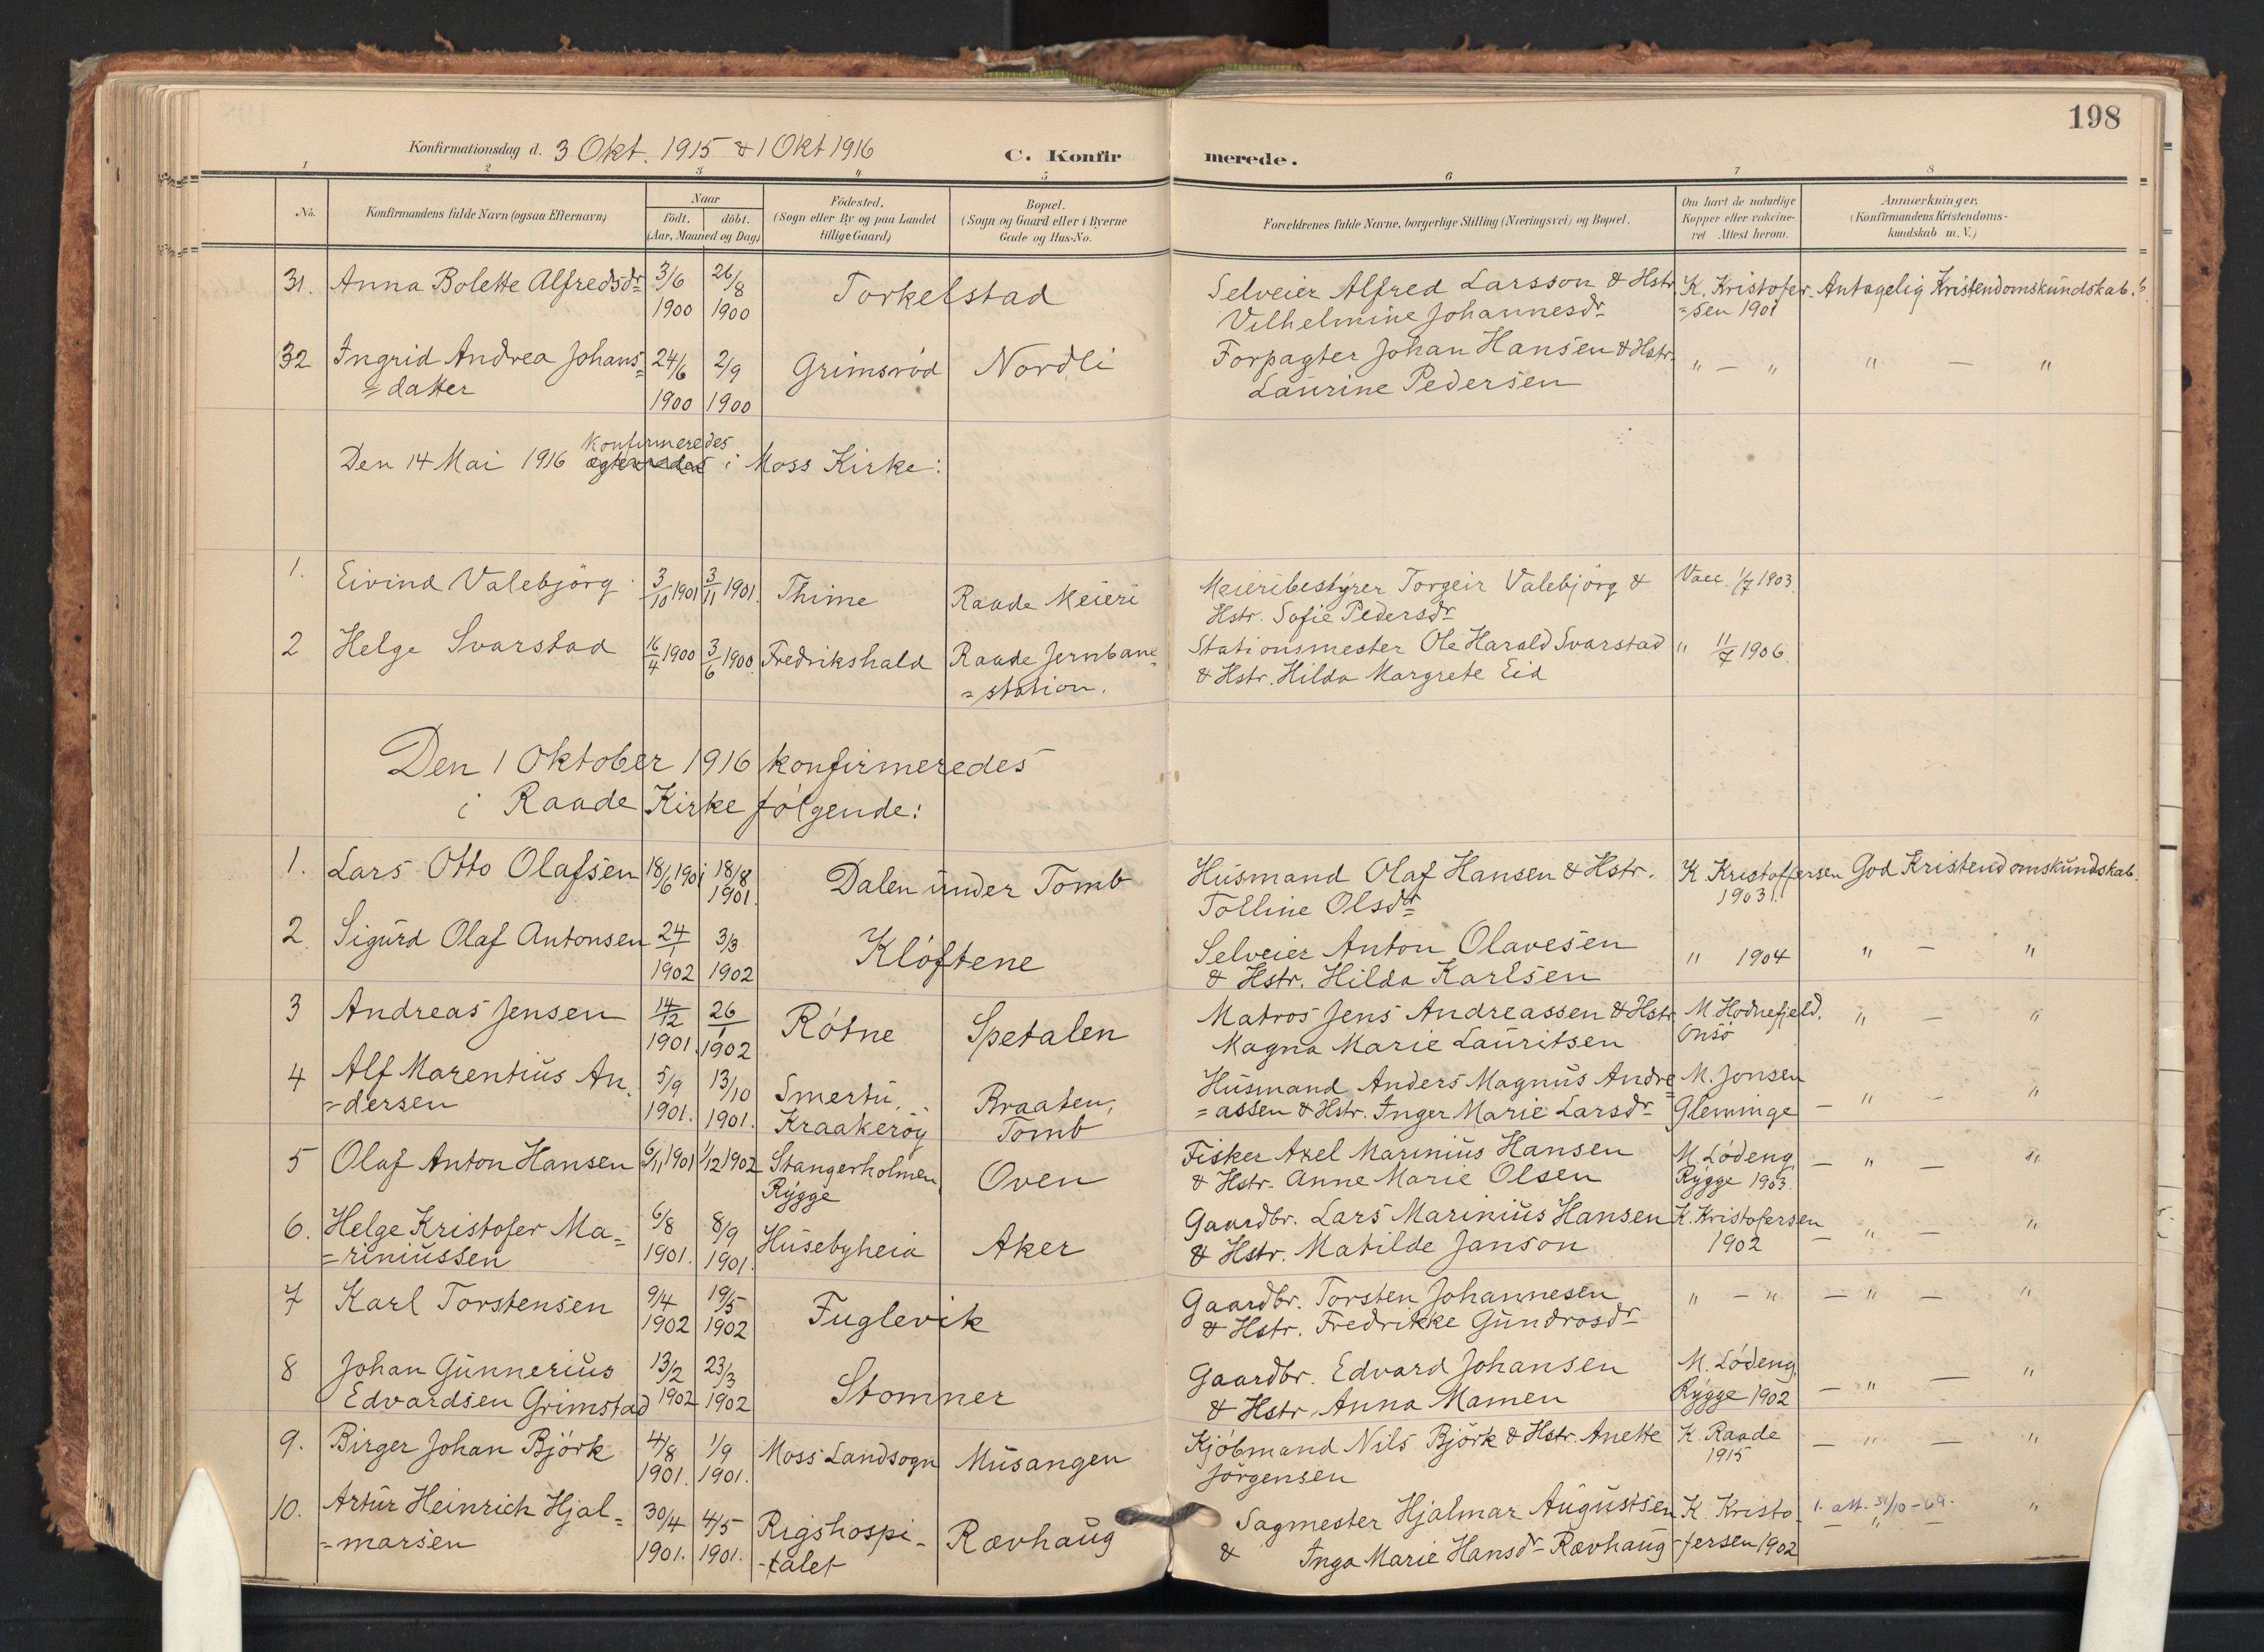 198
Konfirmationsdag d. 3 Okt. 1915 & 1 Okt 1916
C. Konfirmerede.
1 2 3 4 5 6 7 8
No.
Konfirmandens fulde Navn (ogsaa Efternavn)
Naar
födt. döbt.
(Aar, Maaned og Dag)
Födested.
(Sogn eller By og paa Landet
tillige Gaard)
Bopæl.
(Sogn og Gaard eller i Byerne
Gade og Hus-No.
Forældrenes fulde Navne, borgerlige Stilling (Næringsvei) og Bopæl.
Om havt de naturlige
Kopper eller vakcine-
ret Attest herom.
Anmærkninger.
(Konfirmandens Kristendoms-
kundskab m. V.)
31. Anna Bolette Alfredsdr 3/6 26/8 Torkelstad Selveier Alfred Larsson & Hstr. K. Kristofer- Antagelig Kristendomskundskab.
1900 1900 Vilhelmine Johannesdr =sen 1901
32 Ingrid Andrea Johans= 24/6 2/9 Grimsröd Nordli Forpagter Johan Hansen & Hstr. " — " " — "
=datter 1900 1900 Laurine Pedersen
Konfirmeredes
Den 14 Mai 1916 i Moss Kirke:
1. Eivind Valebjörg 3/10 1901 3/11 1901. Thime Raade Meieri Meieribestyrer Torgeir Valebjörg & Vacc. 1/7 1903.
Hstr. Sofie Pedersdr
2 Helge Svarstad 16/4 1900 3/6 1900. Fredrikshald Raade Jernbane= Stationsmester Ole Harald Svarstad " 11/7 1906.
=station. & Hstr. Hilda Margrete Eid
Den 1 Oktober 1916 konfirmeredes
i Raade Kirke fölgende:
1. Lars Otto Olafsen 18/6 1901 18/8 Dalen under Tomb Husmand Olaf Hansen & Hstr. K Kristoffersen God Kristendomskundskab.
1901. Tolline Olsdtr 1903.
2. Sigurd Olaf Antonsen 24/1 3/3 Klöftene Selveier Anton Olavesen " 1904 " — "
1902 1902 & Hstr. Hilda Karlsen
3 Andreas Jensen 14/12 26/1 Rötne Spetalen Matros Jens Andreassen & Hstr. M. Hodnefjeld. " — "
1901. 1902 Magna Marie Lauritsen Onsö
4 Alf Marentius An= 5/9 13/10 Smertu, Braaten, Husmand Anders Magnus Andre= M. Jonsen
=dersen 1901. 1901. Kraakeröy Tomb =assen & Hstr. Inger Marie Larsdr Glemminge — " — "
5 Olaf Anton Hansen 6/11 1901 1/12 1902 Stangerholmen, Oven Fisker Axel Marinius Hansen M. Lödeng, — " — "
Rygge & Hstr. Anne Marie Olsen Rygge 1903.
6. Helge Kristofer Ma= 6/8 8/9 Husebyheia Aker Gaardbr. Lars Marinius Hansen K. Kristofersen
=riniussen 1901. 1901. & Hstr. Matilde Janson 1902 — " — "
7 Karl Torstensen 9/4 19/5 Fuglevik Gaardbr. Torsten Johannesen " — " — " — "
1902 1902 & Hstr. Fredrikke Gundrosdr
8 Johan Gunnerius 13/2 23/3 Stomner Gaardbr. Edvard Johansen M. Lödeng,
Edvardsen Grimstad 1902 1902 & Hstr. Anna Mamen Rygge 1902 — " — "
9. Birger Johan Björk 4/8 1/9 Moss Landsogn Musangen Kjöbmand Nils Björk & Hstr. Anette K. Raade — " — "
1901. 1901. Jörgensen 1915
10. Artur Heinrich Hjal= 30/4 4/5 Rigshospi- Rævhaug Sagmester Hjalmar Augustsen K. Kristo- 1. att. 31/10-69. "
=marsen 1901. 1901. -talet & Inga Marie Hansdr Rævhaug -fersen 1902 — " —